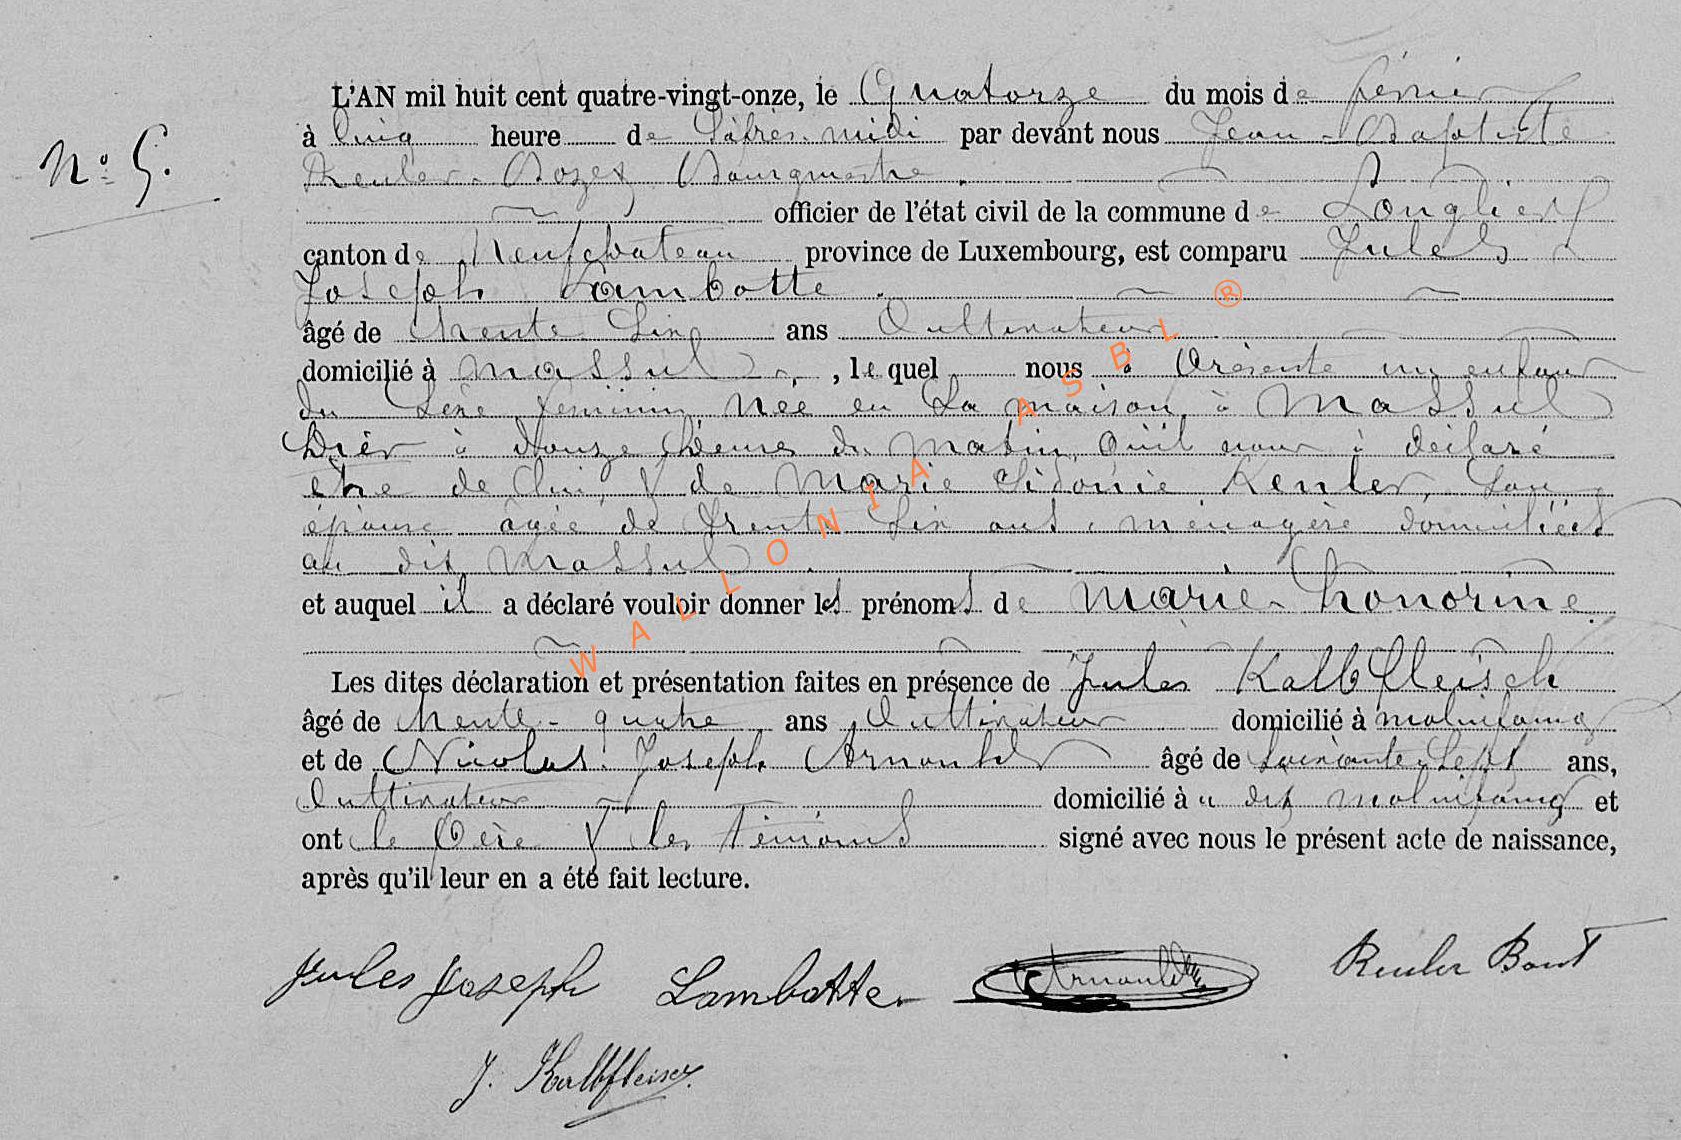 N° 5.
L'AN mil huit cent quatre-vingt-onze, le Quatorze du mois de février
à Cinq heure de L'après-midi par devant nous Jean-Baptiste
Reuler Bourgmestre
officier de l'état civil de la commune de Longlier
canton de Neufchateau province de Luxembourg, est comparu Jules
Joseph Lambotte
âgé de trente Six ans Cultivateur
domicilié à Massul, lequel nous a Présenté un enfant
du Sexe féminin née en Sa maison à Massul
hier à douze heures du Matin, qu'il nous à déclaré
etre de lui, & de Marie Sidonie Renler, Son
épouse agée de trente Six ans, ménagère domiciliées
au dit Massul
et auquel il a déclaré vouloir donner les prénoms de Marie-honorine.
Les dites déclaration et présentation faites en présence de Jules Kalbfleisch
âgé de trente-quatre ans Cultivateur domicilié à molinfaing
et de Nicolas Joseph Arnould âgé de Soixante-Sept ans,
Cultivateur domicilié à u dit molinfaing et
ont le Père & les témoins signé avec nous le présent acte de naissance,
après qu'il leur en a été fait lecture.
Jules Joseph Lambotte Arnould
J. Kalbfleisch
WALLONIA ASBL ®